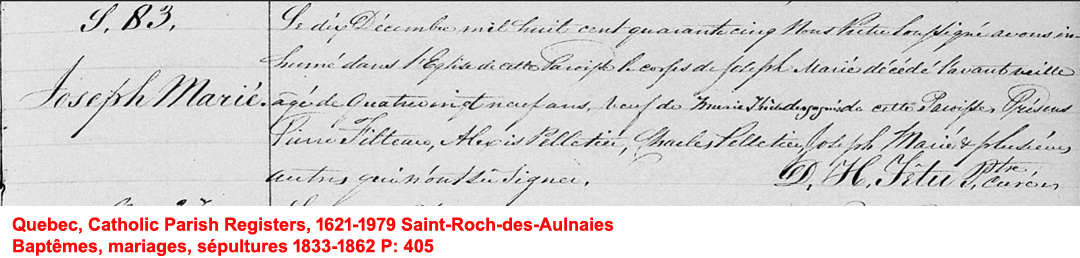 S. 83.
Joseph Marié.
Le dix Décembre mil huit cent quarante cinq Nous Prêtre soussigné avons in-
humé dans l'Eglise de cette Paroisse le corps de Joseph Marié décédé l'avant veille
agé de Quatrevingt neuf ans, veuf de de cette Paroisse. Présens
Pierre Filteau, Alexis Pelletier, Charles Pelletier, Joseph Marié & plusieurs
autres qui n'ont su signer. D. H. Têtu Ptre. Curé
Quebec, Catholic Parish Registers, 1621-1979 Saint-Roch-des-Aulnaies
Baptêmes, mariages, sépultures 1833-1862 P: 405